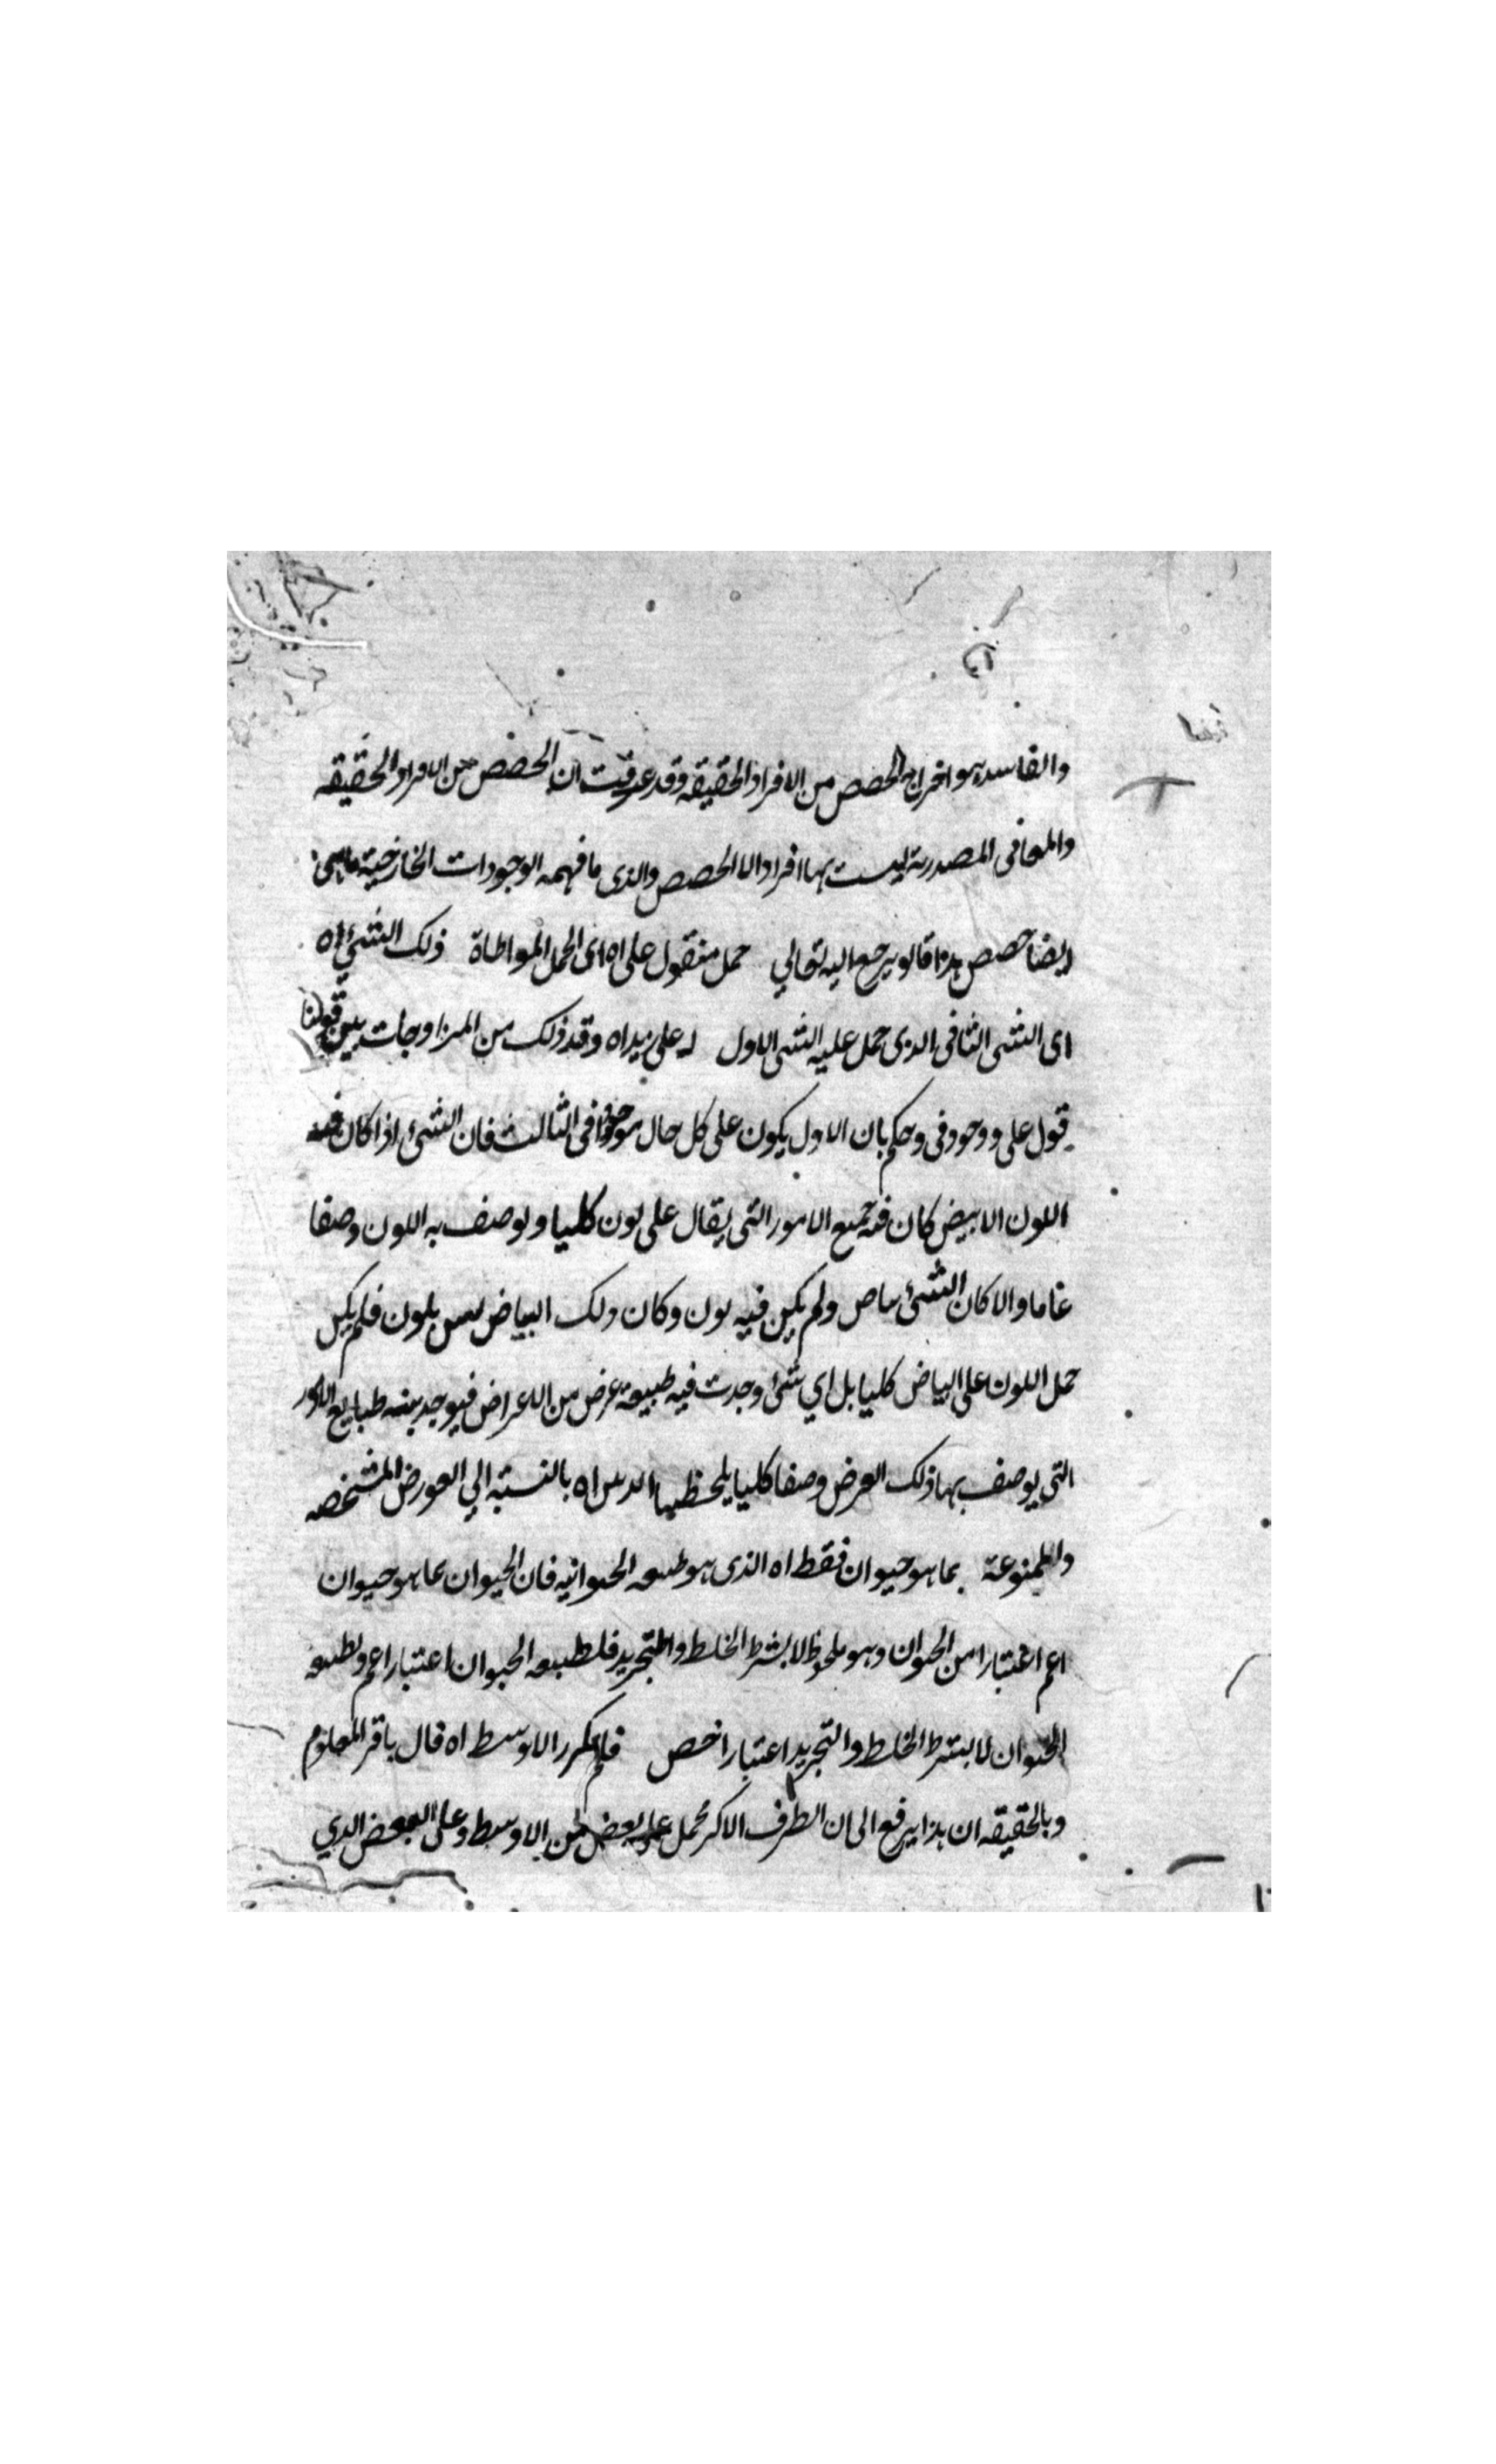 والفاسد هو اخراج الحصص من الافراد الحقيقه وقد عرفت ان الحصص من الافراد الحقيقه
والمعانى المصدرية ليست بها افراد الا الحصص والذى ما فهمه الوجودات الخارجية
ايضا حصص هذا قالو يرجع اليه تعالي حمل منقول على اه اى الحمل المواطاة ذلك الشئ اه
اى الشى الثانى الذى حمل عليه الشى الاول له على زيد اه وقد ذلك من المزاوجات بين قولنا
قول على ووجود فى وحكم بان الاول يكون على كل حال موجودا فى الثالث فان الشئ اذا كان فيه
اللون الابيض كان فيه جميع الامور التى يقال على لون كليا و يوصف به اللون وصفا
عاما والا كان الشئ ولم يكن فيه لون وكان ذلك البياض ليس بلون فلم يكن
حمل اللون على البياض كليا بل اي شئ وجدت فيه طبيعة عرض من الاعراض فيوجد طبايع الامور
التى يوصف بها ذلك العرض وصفا كليا اه بالنسبة الي العورض المشخصه
والمنوعة بما هو حيوان فقط اه الذى هو طبيعه الحيوانيه فان الحيوان بما هو حيوان
اعم اعتبارا من الحيوان وهو ملحوظ لا بشرط الخلط والتجريد فلطبيعه الحيوان اعتبار اعم ولطبيعه
الحيوان لا بشرط الخلط والتجريد اعتبار اخص فلم تكرر الاوسط اه قال باقر العلوم
وبالحقيقه ان هذا يرفع الى ان الطرف الاكبر محمل على بعض من الاوسط وعلى البعض الذي